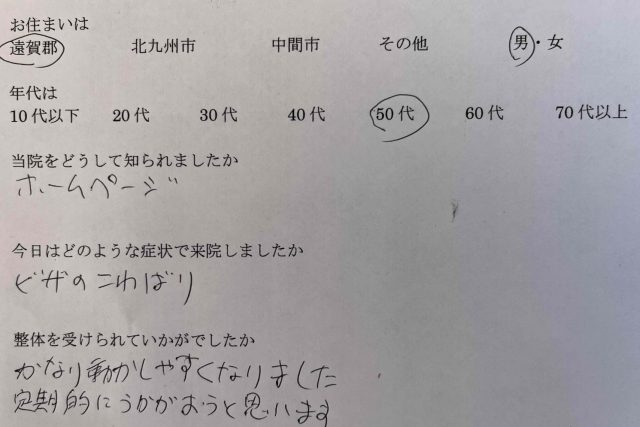 お住まいは
遠賀郡 北九州市 中間市 その他 男・女
年代は
10代以下 20代 30代 40代 50代 60代 70代以上
当院をどうして知られましたか
ホームページ
今日はどのような症状で来院しましたか
ヒザのこわばり
整体を受けられていかがでしたか
かなり動かしやすくなりました
定期的にうかがおうと思います